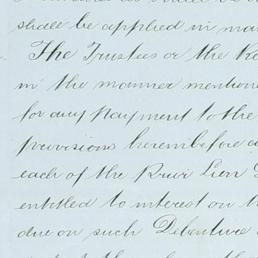 shall be applied in
The Trustees or the
in the manner mentioned
for any payment to the
provisions hereinbefore
each of the River Lien
entitled to interest on
due on such Debenture